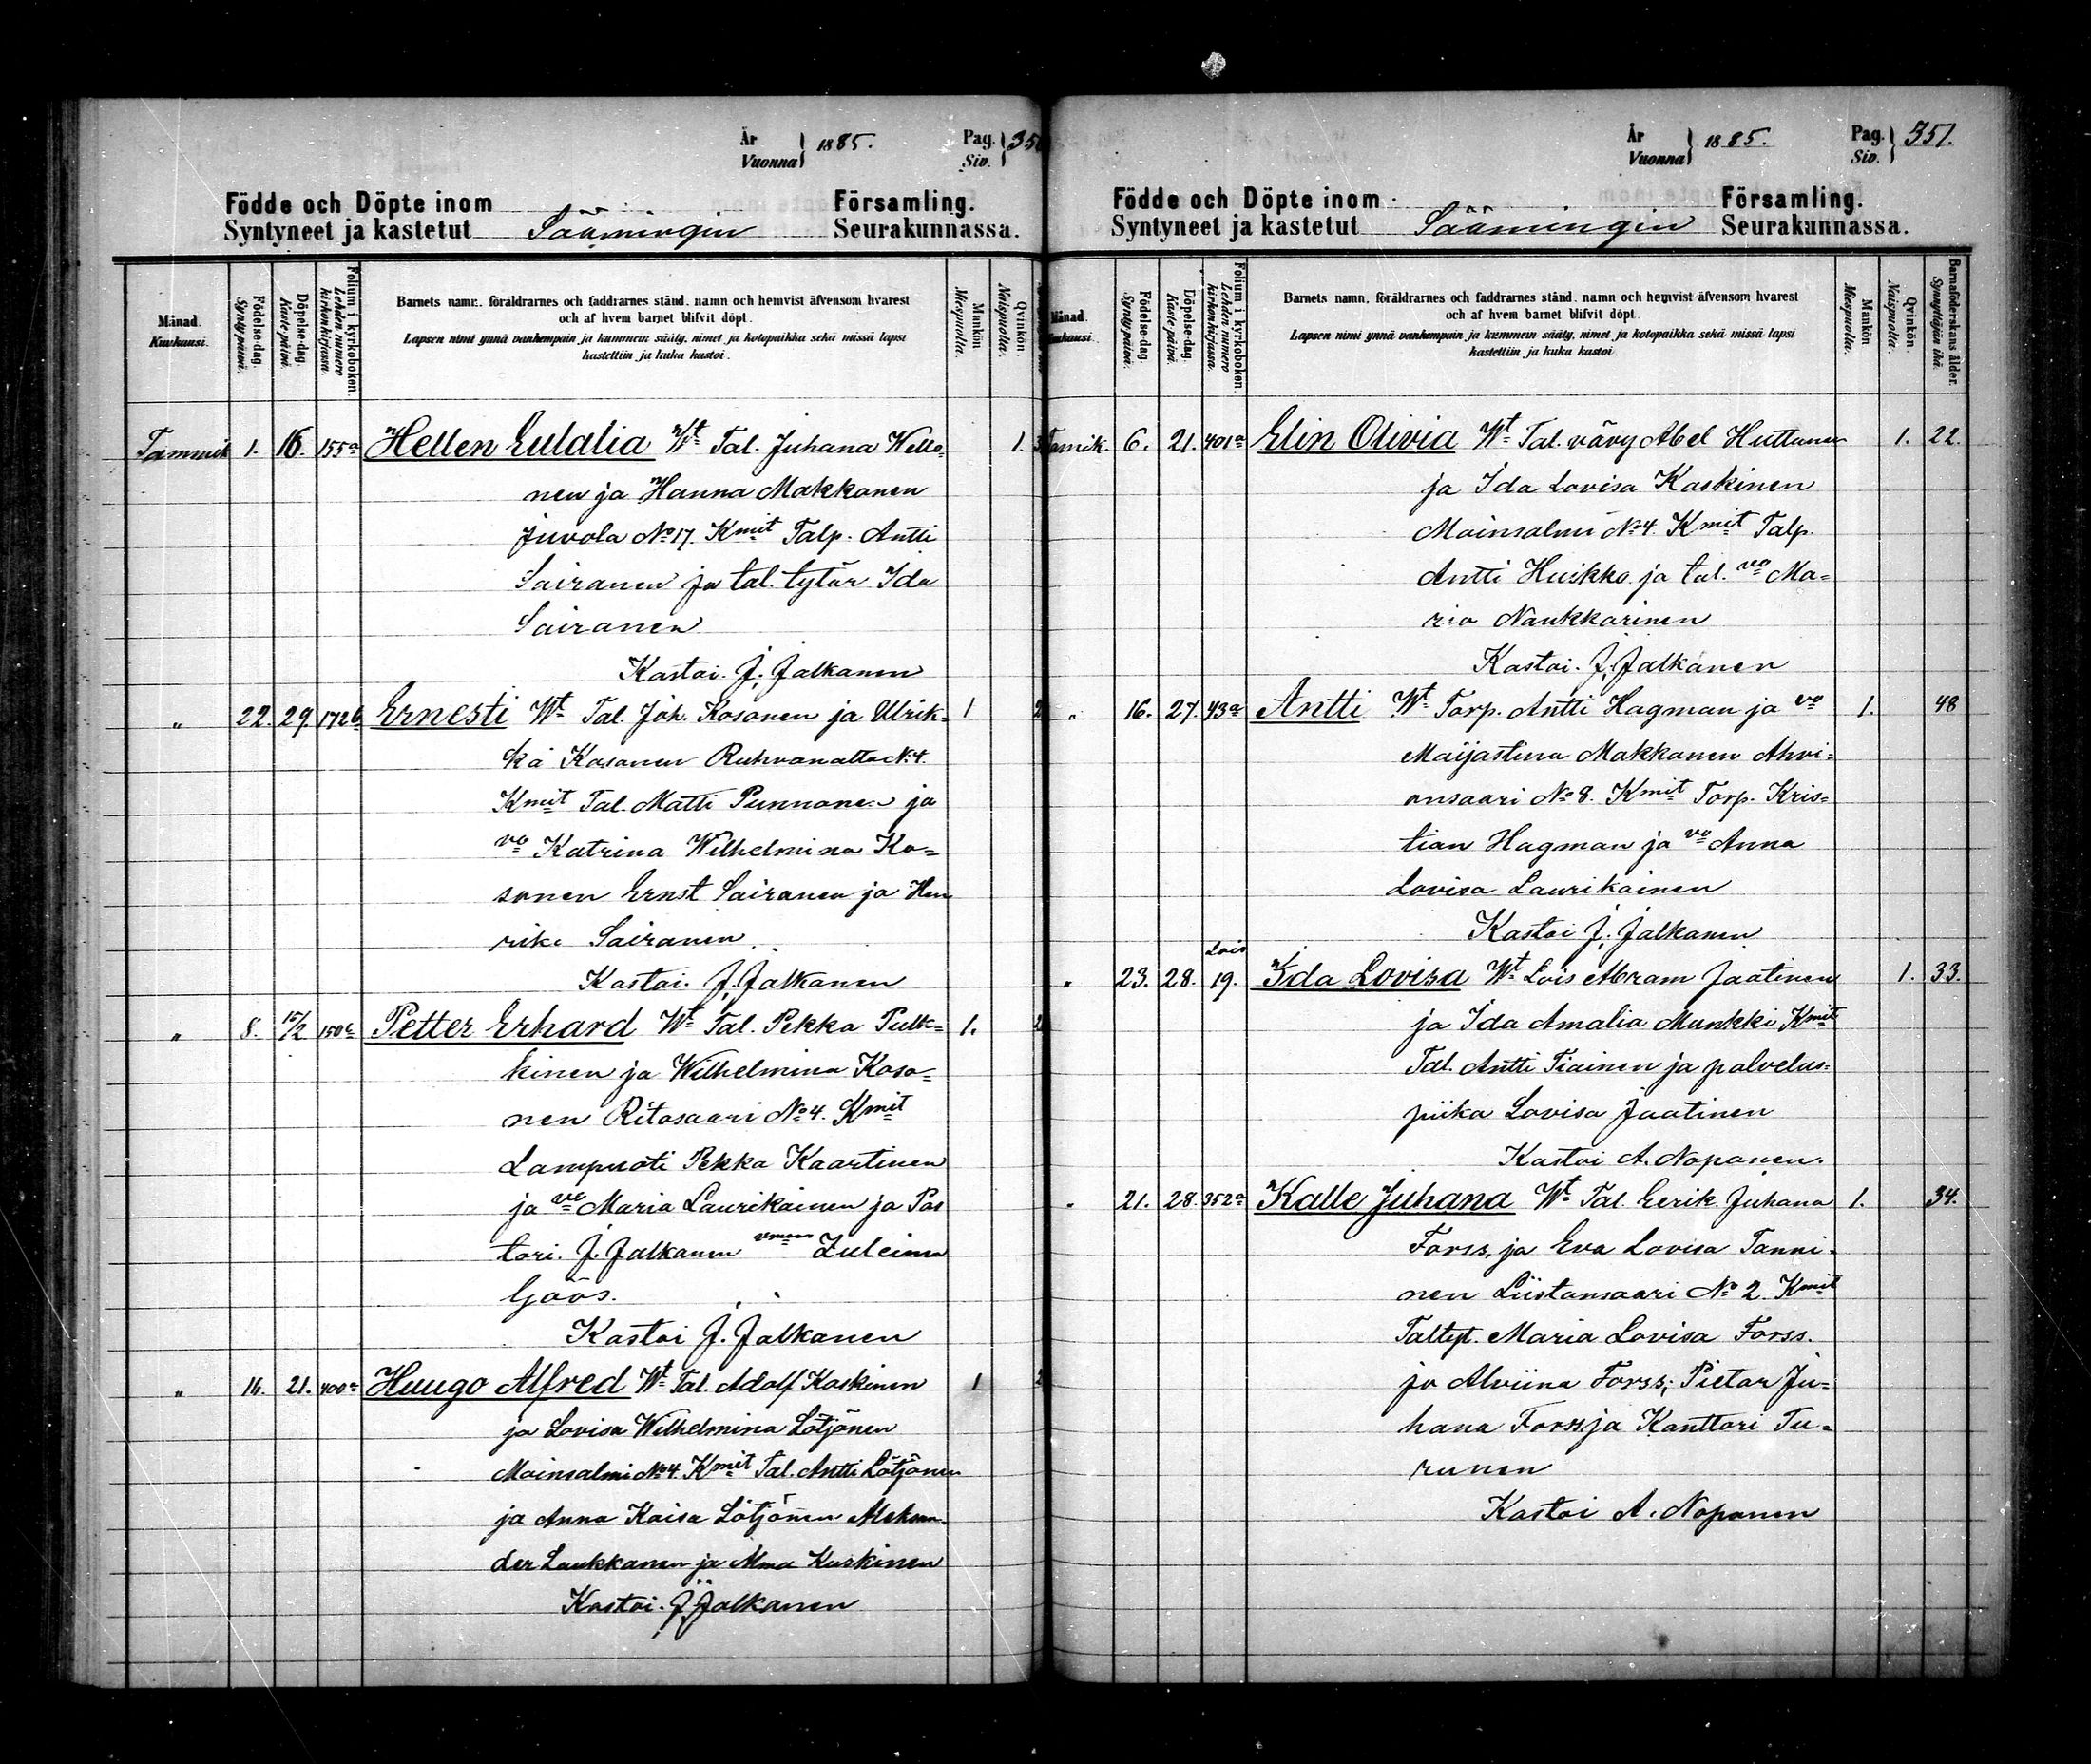 År
Vuonna } 1885.
Pag.
Siv. } 350
Födde och Döpte inom Församling.
Syntyneet ja kastetut Säämingin Seurakunnassa.
Månad. Kuukausi.
Födelse-dag. Synty-päivä.
Döpelse-dag. Kaste-päivä.
Folium i kyrkoboken. Lehden numero kirkonkirjassa.
Barnets namn, föräldrarnes och faddrarnes stånd, namn och hemvist äfvensom hvarest
och af hvem barnet blifvit döpt.
Lapsen nimi ynnä vanhempain ja kummein sääty, nimet ja kotopaikka sekä missä lapsi
kastettiin ja kuka kastoi.
Mankön Miespuolia.
Qvinkön. Naispuolia.
Tammik 1. 16. 155a Hellen Eulalia Wt Tal. Juhana Wello- 1. 3
nen ja Hanna Makkonen
Juvola No 17. Kmit Talp. Antti
Sairanen ja tal. tytär Ida
Sairanen
Kastoi. J. Jalkanen
" 22. 29. 172b Ernesti Wt Tal. Joh. Kosonen ja Ulrik- 1 2
ka Kosonen Ruhvanatta N:4.
Kmit Tal. Matti Punnonen ja
vo Katrina Wilhelmina Ko-
sonen Ernst Sairanen ja Hen
rika Sairanen
Kastoi. J. Jalkanen
" 8. 15/2 150a Petter Erhard Wt Tal. Pekka Pulk- 1. 2
kinen ja Wilhelmina Koso-
nen Ritosaari No 4. Kmit
Lampuoti Pekka Kaartinen
ja vo Maria Laurikainen ja Pas
tori. J. Jalkanen Zuleima
Göös.
Kastoi J. Jalkanen
" 16. 21. 400a Huugo Alfred Wt Tal. Adolf Kaskinen 1 2
ja Lovisa Wilhelmina Lötjönen
Moinsalmi No 4. Kmit Tal. Antti Lötjönen
ja Anna Kaisa Lötjönen Aleksan-
der Laukkanen ja Alma Kaskinen
Kastoi. J. Jalkanen
År
Vuonna } 1885.
Pag.
Siv. } 351.
Födde och Döpte inom Församling.
Syntyneet ja kastetut Säämingin Seurakunnassa.
Månad. Kuukausi.
Födelse-dag. Synty-päivä.
Döpelse-dag. Kaste-päivä.
Folium i kyrkoboken. Lehden numero kirkonkirjassa.
Barnets namn, föräldrarnes och faddrarnes stånd, namn och hemvist äfvensom hvarest
och af hvem barnet blifvit döpt.
Lapsen nimi ynnä vanhempain ja kummein sääty, nimet ja kotopaikka sekä missä lapsi
kastettiin ja kuka kastoi.
Mankön Miespuolia.
Qvinkön. Naispuolia.
Barnaföderskans ålder. Synnyttäjän ikä.
Tamik. 6. 21. 401a Elin Olivia Wt Tal. vävy Abel Huttunen 1. 22.
ja Ida Lovisa Kaskinen
Moinsalmi No 4. Kmit Talp.
Antti Huikko ja tal. vo Ma-
ria Naukkarinen
Kastoi. J. Jalkanen
" 16. 27. 43a Antti Wt Torp. Antti Hagman ja vo 1. 48
Maijastina Makkonen Ahvi-
onsaari No 8. Kmit Torp. Kris-
tian Hagman ja vo Anna
Lovisa Laurikainen
Kastoi J. Jalkanen
Lois
" 23. 28. 19. Ida Lovisa Wt Lois Abram Jaatinen 1. 33.
ja Ida Amalia Munkki Kmit
Tal. Antti Tiainen ja palvelus-
piika Lovisa Jaatinen
Kastoi A. Noponen.
" 21. 28. 352a Kalle Juhana Wt Tal. Eerik Juhana 1. 34.
Forss, ja Eva Lovisa Tanni-
nen Liistonsaari No 2. Kmit
Taltyt. Maria Lovisa Forss.
ja Alviina Forss; Pietar Ju-
hana Forss ja Kanttori Tu-
runen
Kastoi A. Noponen